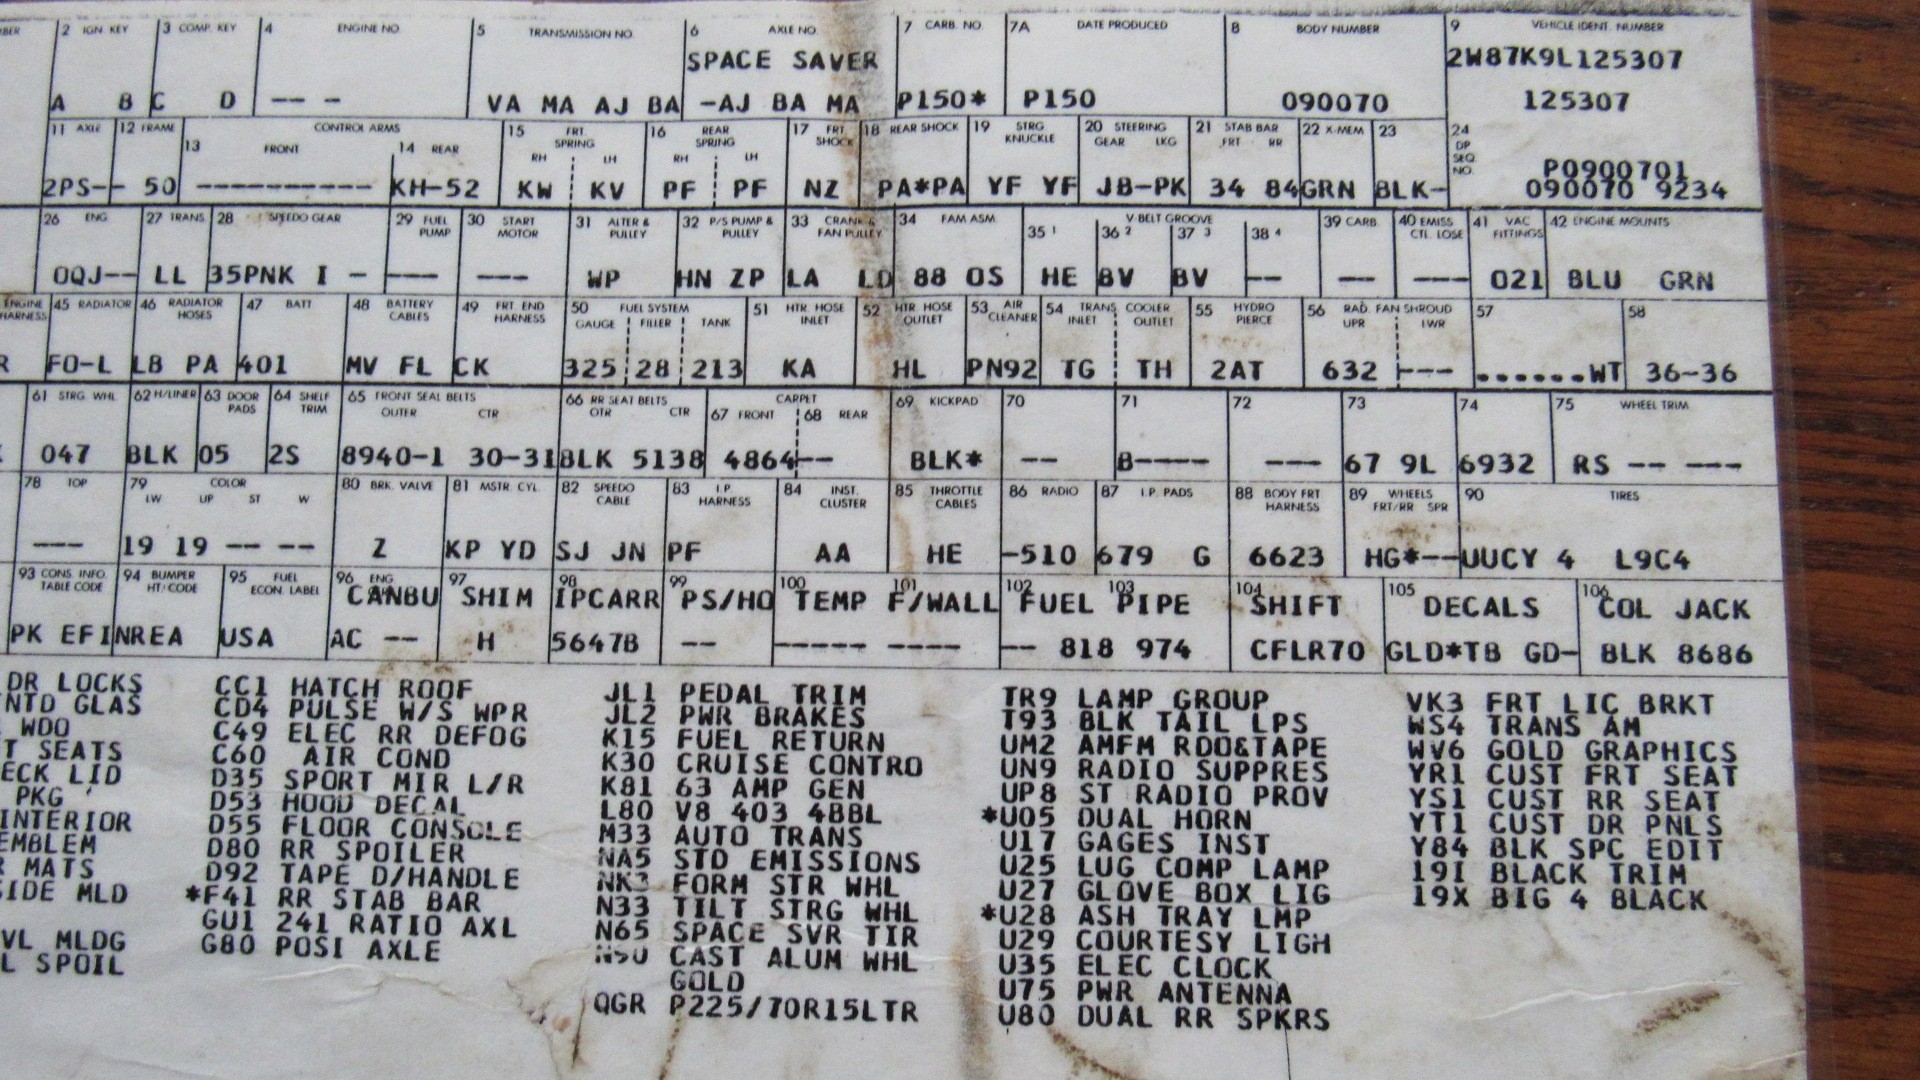 BER 2 IGN KEY 3 COMP. KEY 4 ENGINE NO. 5 TRANSMISSION NO. 6 AXLE NO. 7 CARB. NO. 7A DATE PRODUCED 8 BODY NUMBER 9 VEHICLE IDENT. NUMBER
SPACE SAVER 2W87K9L125307
A B C D -- - VA MA AJ BA -AJ BA MA P150* P150 090070 125307
11 AXLE 12 FRAME CONTROL ARMS 13 FRONT 14 REAR 15 FRT. SPRING RH LH 16 REAR SPRING RH LH 17 FRT SHOCK 18 REAR SHOCK 19 STRG KNUCKLE 20 STEERING GEAR LKG 21 STAB BAR FRT RR 22 X-MEM 23 24 DP SEQ. NO.
P0900701
2PS-- 50 ----------- KH-52 KW KV PF PF NZ PA*PA YF YF JB-PK 34 84 GRN BLK- 090070 9234
26 ENG 27 TRANS. 28 SPEEDO GEAR 29 FUEL PUMP 30 START MOTOR 31 ALTER & PULLEY 32 P/S PUMP & PULLEY 33 CRANK & FAN PULLEY 34 FAM ASM. V-BELT GROOVE 35 1 36 2 37 3 38 4 39 CARB. 40 EMISS CTL. LOSE 41 VAC FITTINGS 42 ENGINE MOUNTS
OQJ-- LL 35PNK I - --- --- WP HN ZP LA LD 88 OS HE BV BV -- -- --- 021 BLU GRN
ENGINE HARNESS 45 RADIATOR 46 RADIATOR HOSES 47 BATT 48 BATTERY CABLES 49 FRT. END HARNESS 50 FUEL SYSTEM GAUGE FILLER TANK 51 HTR. HOSE INLET 52 HTR. HOSE OUTLET 53 AIR CLEANER 54 TRANS COOLER INLET OUTLET 55 HYDRO PIERCE 56 RAD. FAN SHROUD UPR LWR 57 58
R FO-L LB PA 401 MV FL CK 325 28 213 KA HL PN92 TG TH 2AT 632 --- ......WT 36-36
61 STRG. WHL 62 H/LINER 63 DOOR PADS 64 SHELF TRIM 65 FRONT SEAT BELTS OUTER CTR 66 RR SEAT BELTS OTR CTR CARPET 67 FRONT 68 REAR 69 KICKPAD 70 71 72 73 74 75 WHEEL TRIM
047 BLK 05 2S 8940-1 30-31 BLK 5138 4864 -- BLK* -- B---- --- 67 9L 6932 RS -- ---
78 TOP 79 COLOR LW UP ST W 80 BRK. VALVE 81 MSTR. CYL. 82 SPEEDO CABLE 83 I.P. HARNESS 84 INST. CLUSTER 85 THROTTLE CABLES 86 RADIO 87 I.P. PADS 88 BODY FRT HARNESS 89 WHEELS FRT/RR SPR 90 TIRES
--- 19 19 -- -- Z KP YD SJ JN PF AA HE -510 679 G 6623 HG*-- UUCY 4 L9C4
93 CONS. INFO. TABLE CODE 94 BUMPER HT. CODE 95 FUEL ECON. LABEL 96 ENG CANBU 97 SHIM 98 IPCARR 99 PS/HO 100 TEMP 101 F/WALL 102 FUEL 103 PIPE 104 SHIFT 105 DECALS 106 COL JACK
PK EFI NREA USA AC -- H 5647B -- ----- ---- -- 818 974 CFLR70 GLD*TB GD- BLK 8686
DR LOCKS
NTD GLAS
WDO
T SEATS
ECK LID
PKG
INTERIOR
EMBLEM
R MATS
SIDE MLD
VL MLDG
L SPOIL
CC1 HATCH ROOF
CD4 PULSE W/S WPR
C49 ELEC RR DEFOG
C60 AIR COND
D35 SPORT MIR L/R
D53 HOOD DECAL
D55 FLOOR CONSOLE
D80 RR SPOILER
D92 TAPE D/HANDLE
*F41 RR STAB BAR
GU1 241 RATIO AXL
G80 POSI AXLE
JL1 PEDAL TRIM
JL2 PWR BRAKES
K15 FUEL RETURN
K30 CRUISE CONTRO
K81 63 AMP GEN
L80 V8 403 4BBL
M33 AUTO TRANS
NA5 STD EMISSIONS
NK3 FORM STR WHL
N33 TILT STRG WHL
N65 SPACE SVR TIR
N90 CAST ALUM WHL
GOLD
QGR P225/70R15LTR
TR9 LAMP GROUP
T93 BLK TAIL LPS
UM2 AMFM RDO&TAPE
UN9 RADIO SUPPRES
UP8 ST RADIO PROV
*U05 DUAL HORN
U17 GAGES INST
U25 LUG COMP LAMP
U27 GLOVE BOX LIG
*U28 ASH TRAY LMP
U29 COURTESY LIGH
U35 ELEC CLOCK
U75 PWR ANTENNA
U80 DUAL RR SPKRS
VK3 FRT LIC BRKT
WS4 TRANS AM
WV6 GOLD GRAPHICS
YR1 CUST FRT SEAT
YS1 CUST RR SEAT
YT1 CUST DR PNLS
Y84 BLK SPC EDIT
19I BLACK TRIM
19X BIG 4 BLACK